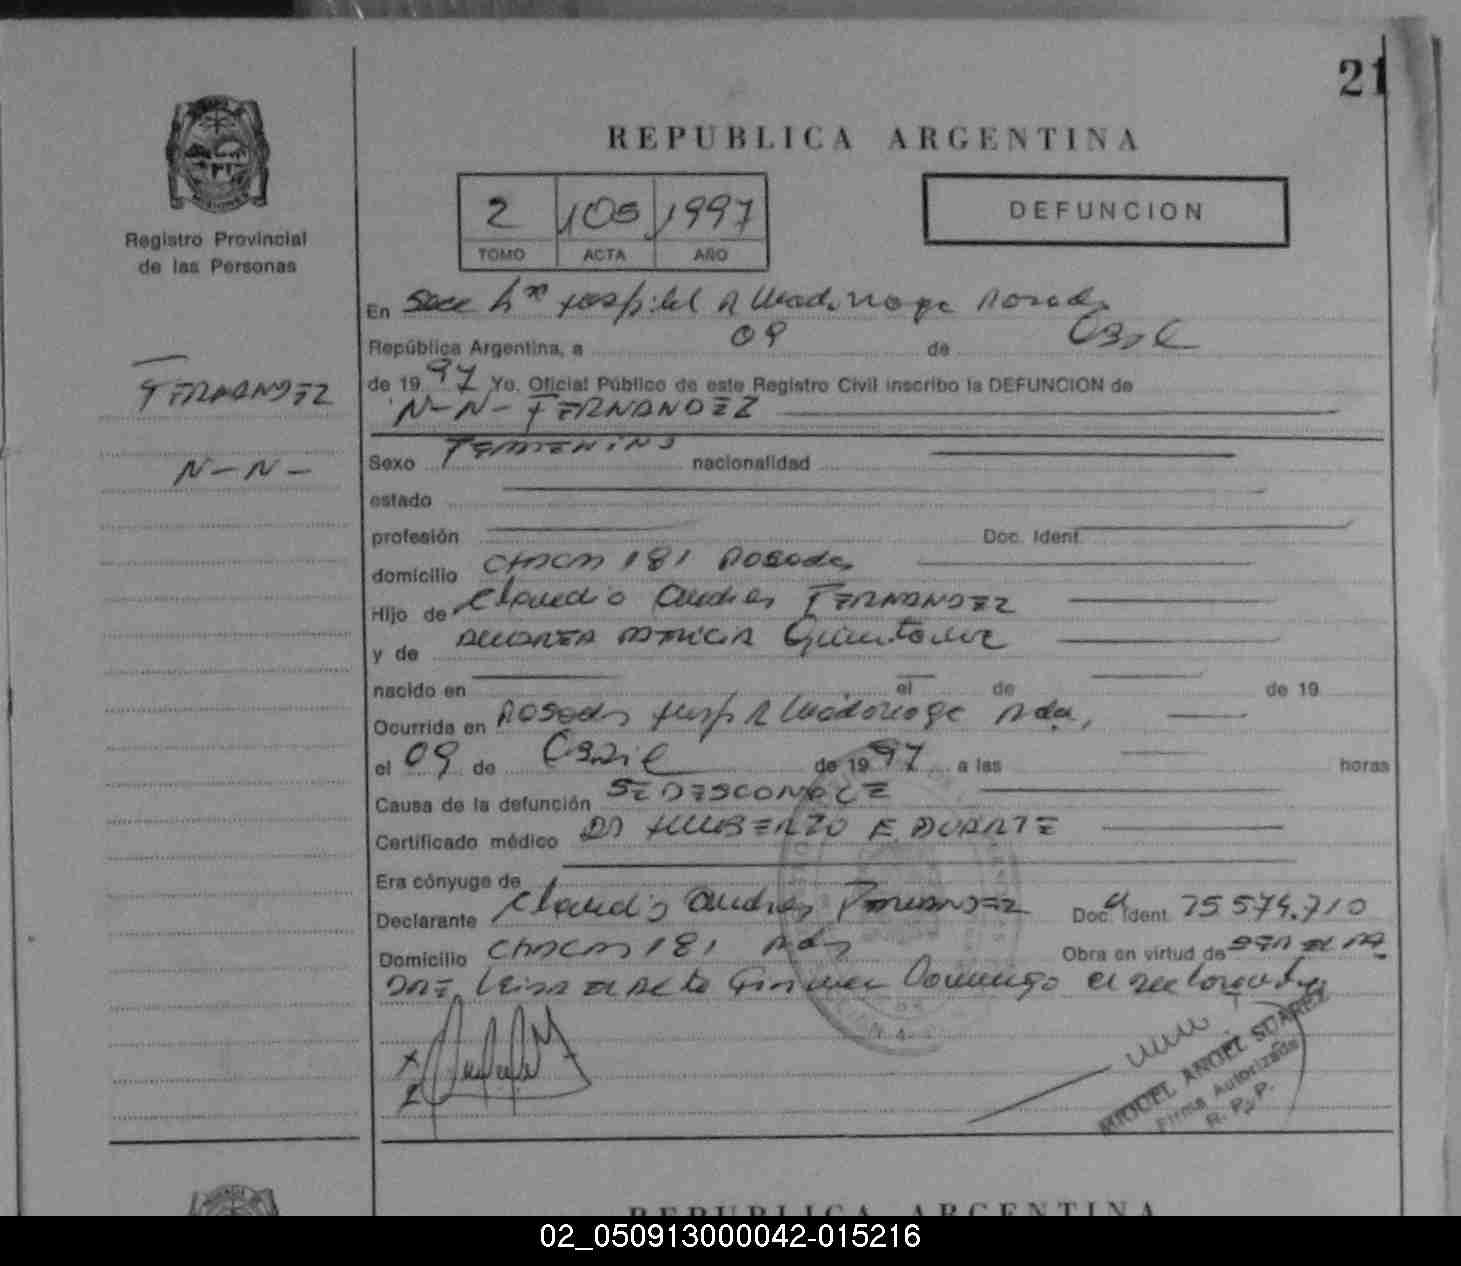 21
REPUBLICA ARGENTINA
2 105 1997
TOMO ACTA AÑO
DEFUNCION
Registro Provincial
de las Personas
FERNANDEZ
N-N-
En
República Argentina, a 09 de
de 1997 Yo, Oficial Público de este Registro Civil inscribo la DEFUNCION de
N-N- FERNANDEZ
Sexo FEMENINO nacionalidad
estado
profesión Doc. Ident.
domicilio CHACRA 181 Posadas
Hijo de Claudio Andres FERNANDEZ
y de PATRICIA Quintana
nacido en el de de 19
Ocurrida en POSADAS Hosp R Madariaga
el 09 de de 1997 a las horas
Causa de la defunción SE DESCONOCE
Certificado médico DR HUMBERTO E DUARTE
Era cónyuge de
Declarante Claudio Andres FERNANDEZ Doc. Ident.
Domicilio CHACRA 181 Obra en virtud de
MIGUEL ANGEL SUAREZ
Firma Autorizada
R. P. P.
REPUBLICA ARGENTINA
02_050913000042-015216